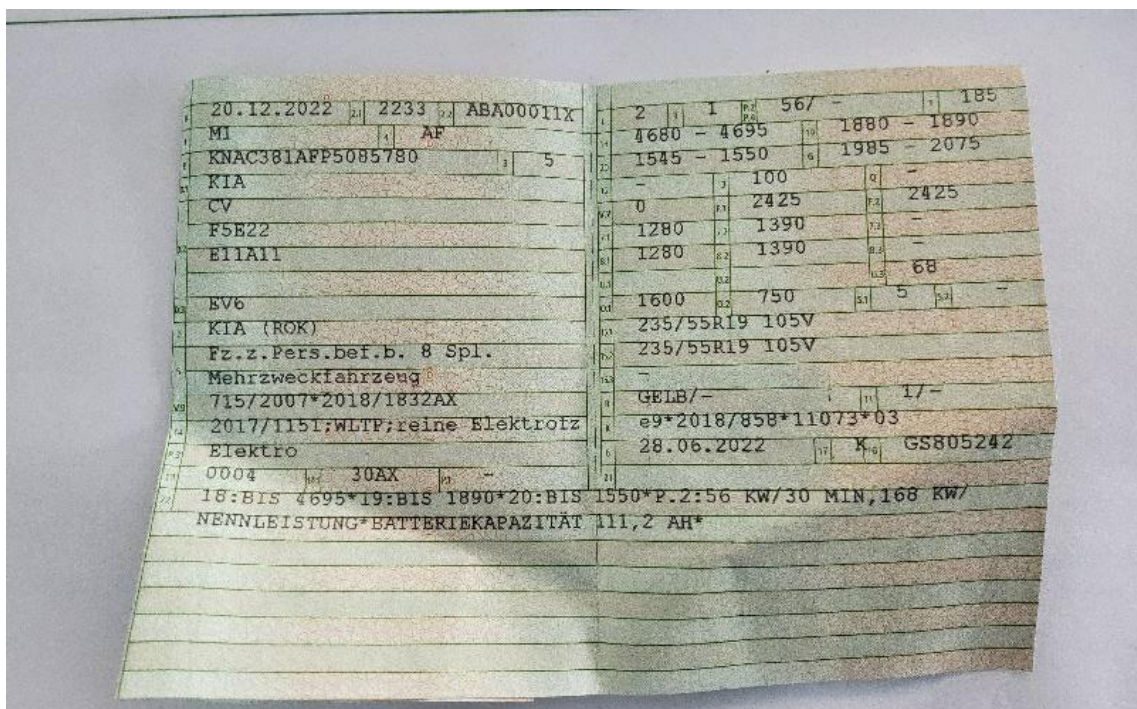 20.12.2022 2.1 2233 2.2 ABA00011X
M1 4 AF
KNAC381AFP5085780 3 5
KIA
CV
F5E22
E11A11
EV6
KIA (ROK)
Fz.z.Pers.bef.b. 8 Spl.
Mehrzweckfahrzeug
715/2007*2018/1832AX
2017/1151;WLTP;reine Elektrofz
Elektro
0004 30AX -
2 1 P.2 P.4 56/ - 185
4680 - 4695 19 1880 - 1890
1545 - 1550 G 1985 - 2075
- 100 Q -
0 F.1 2425 F.2 2425
1280 7.2 1390 7.3 -
1280 8.2 1390 8.3 -
U.2 U.3 68
1600 O.2 750 S.1 5 S.2 -
235/55R19 105V
235/55R19 105V
-
GELB/- 11 1/-
e9*2018/858*11073*03
28.06.2022 17 K 16 GS805242
21
22 18:BIS 4695*19:BIS 1890*20:BIS 1550*P.2:56 KW/30 MIN,168 KW/
NENNLEISTUNG*BATTERIEKAPAZITÄT 111,2 AH*